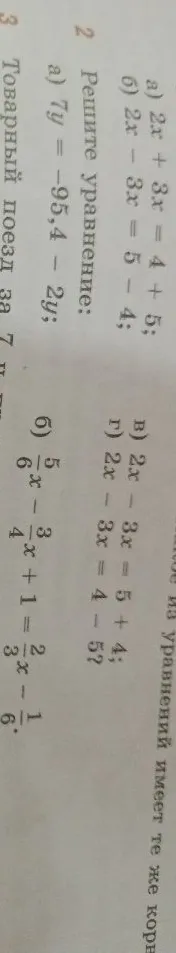 из уравнений имеет те же
а) 2x + 3x = 4 + 5;    в) 2x − 3x = 5 + 4;
б) 2x − 3x = 5 − 4;    г) 2x − 3x = 4 − 5?
2 Решите уравнение:
а) 7y = −95,4 − 2y;    б) 5/6 x − 3/4 x + 1 = 2/3 x − 1/6.
3 Товарный поезд за 7